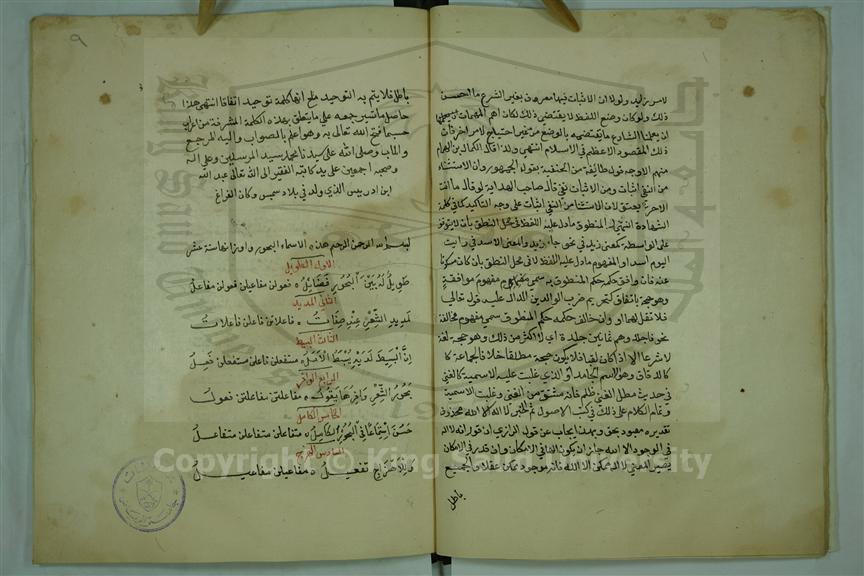 لامر زايد ولولا ان الاثبات فيها معروف بغير الشرع ما احسن
ذلك ولو كان وضع اللفظ لا يقتضي ذلك لكان اهم المهمات
ان يعلمنا الشارع ما يقتضيه بالوضع من غير احتياج لامر اخر فان
ذلك المقصود الاعظم في الاسلام انتهى وقد افاد الكمال بن الهمام
منهم الاوجه طائفة من الحنفية يقول الجمهور وان الاستثناء
من النفي اثبات ومن الاثبات نفي قال صاحب الهداية لو قال ما انت
الا حر يعتق لان الاستثناء من النفي اثبات على وجه التاكيد كما في كلمة
الشهادة انتهى المنطوق ما دل عليه اللفظ في محل النطق بان لا يتوقف
على الواسطة كمعنى زيد في نحو جاء زيد والمعنى الاسد في رايت
اليوم اسد او المفهوم ما دل عليه اللفظ لا في محل النطق بان كان سكوتا
عنه فان وافق حكم المنطوق به سمي مفهوم موافقة
وهو حجة باتفاق كتحريم ضرب الوالدين الدال عليه قوله تعالى
فلا تقل لهما اف وان خالف حكمه حكم المنطوق سمي مفهوم مخالفة
نحو فاجلدوهم ثمانين جلدة اي لا اكثر من ذلك وهو حجة لغة
لا شرعا الا اذا كان لقبا فلا يكون حجة مطلقا خلافا لجماعة كا
كالدقاق وهو الاسم الجامد او الذي غلبت عليه الاسمية كالغني
في حديث مطل الغني ظلم فانه مشتق من الغنى وغلبت الاسمية
وتمام الكلام على ذلك في كتب الاصول ثم الخبر لا اله الا الله محذوف
تقديره معبود بحق وبهذا يجاب عن قول الرازي ان قولنا لا اله
في الوجود الا الله جاز ان يكون الغنا في الامكان وان قدر في الامكان
يصير المعنى لا اله ممكن الا الله فانه موجود ممكن عقلا والجميع
باطل
٩
باطل فلا يتم به التوحيد مع انها كلمة توحيد اتفاقا انتهى هذا
حاصل ما تيسر جمعه على ما يتعلق بهذه الكلمة المشرفة من اعراب
حسبما فتح الله تعالى به وهو اعلم بالصواب واليه المرجع
والماب وصلى الله على سيدنا محمد سيد المرسلين وعلى اله
وصحبه اجمعين على يد كاتبه الفقير الى الله تعالى عبد الله
ابن ادريس الذي ولد في بلاد وكان الفراغ
بسم الله الرحمن الرحيم هذه الاسماء البحور واوزانها ستة عشر
الاول الطويل
طويل له بين البحور فضائل ٥ فعولن مفاعيلن فعولن مفاعل
الثاني المديد
لمديد الشعر عندي صفات ٥ فاعلاتن فاعلن فاعلات
الثالث البسيط
ان البسيط لديه يبسط الامل ٥ مستفعلن فاعلن مستفعلن فعل
الرابع الوافر
بحور الشعر وافرها يقول ٥ مفاعلتن مفاعلتن فعول
الخامس الكامل
حسن استماعا في البحور الكامل ٥ متفاعلن متفاعلن متفاعل
السادس الهزج
وبالاهزاج تفعيل ٥ مفاعيلن مفاعيل
Copyright © King Saud University